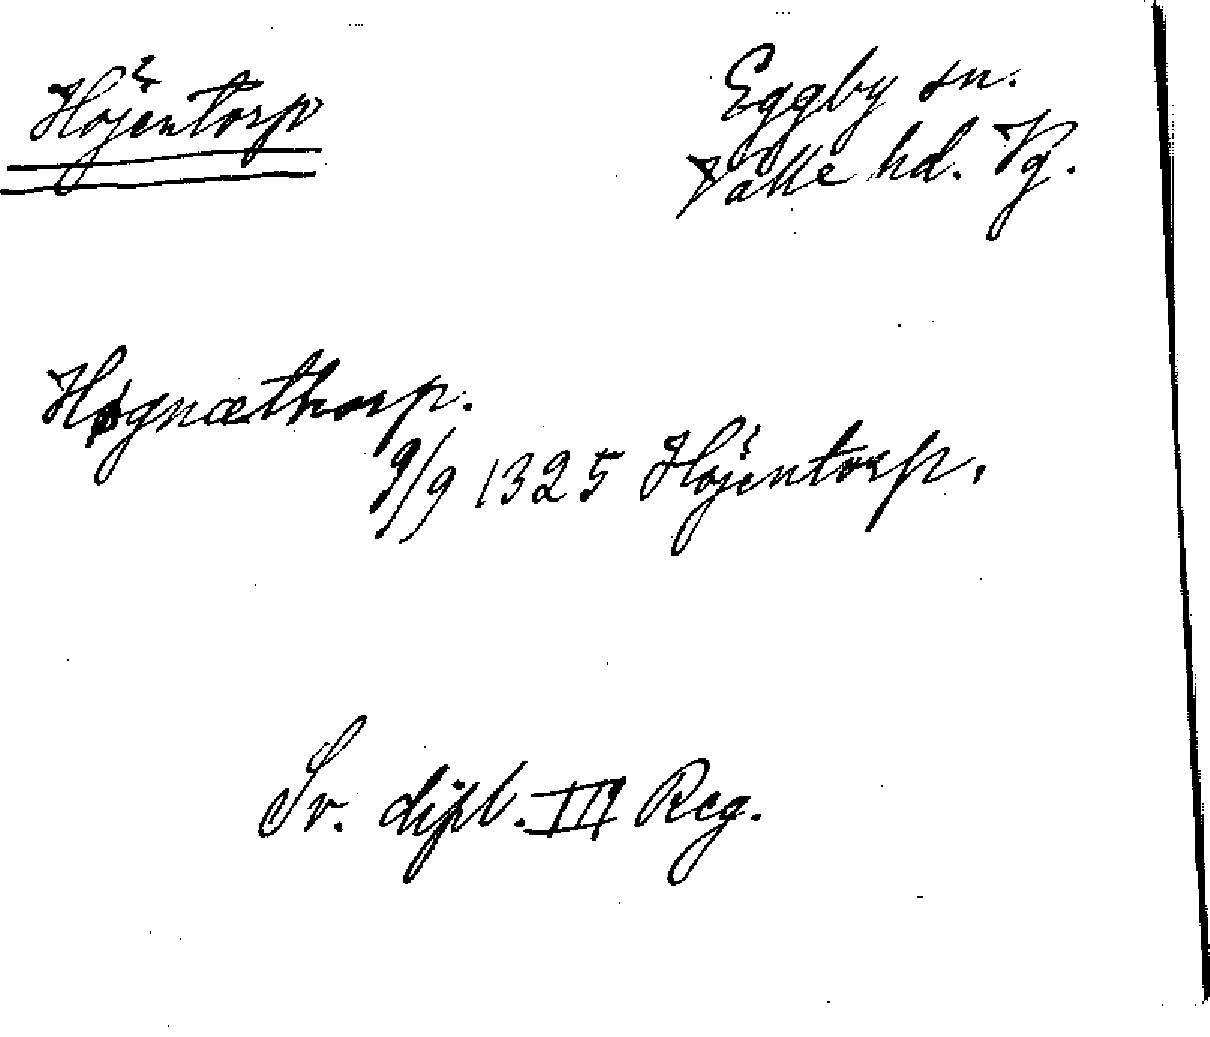 Höjentorp
Eggby sn.
Valle hd. Vg.
Høgnæthorp.
9/9 1325 Höjentorp.
Sv. dipl. III Reg.